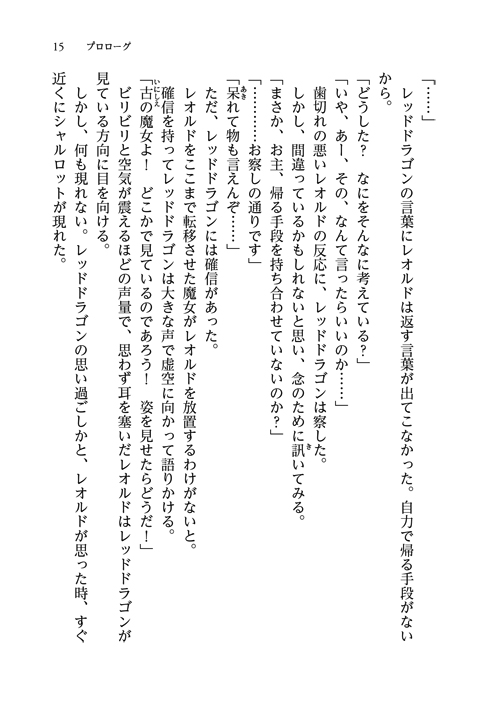 15　プロローグ
『……』
　レッドドラゴンの言葉にレオルドは返す言葉が出てこなかった。自力で帰る手段がない
から。
『どうした？　なにをそんなに考えている？』
「いや、あー、その、なんて言ったらいいのか……」
　歯切れの悪いレオルドの反応に、レッドドラゴンは察した。
　しかし、間違っているかもしれないと思い、念のために訊いてみる。
『まさか、お主、帰る手段を持ち合わせていないのか？』
「…………お察しの通りです」
『呆れて物も言えんぞ……』
　ただ、レッドドラゴンには確信があった。
　レオルドをここまで転移させた魔女がレオルドを放置するわけがないと。
　確信を持ってレッドドラゴンは大きな声で虚空に向かって語りかける。
『古の魔女よ！　どこかで見ているのであろう！　姿を見せたらどうだ！』
　ビリビリと空気が震えるほどの声量で、思わず耳を塞いだレオルドはレッドドラゴンが
見ている方向に目を向ける。
　しかし、何も現れない。レッドドラゴンの思い過ごしかと、レオルドが思った時、すぐ
近くにシャルロットが現れた。